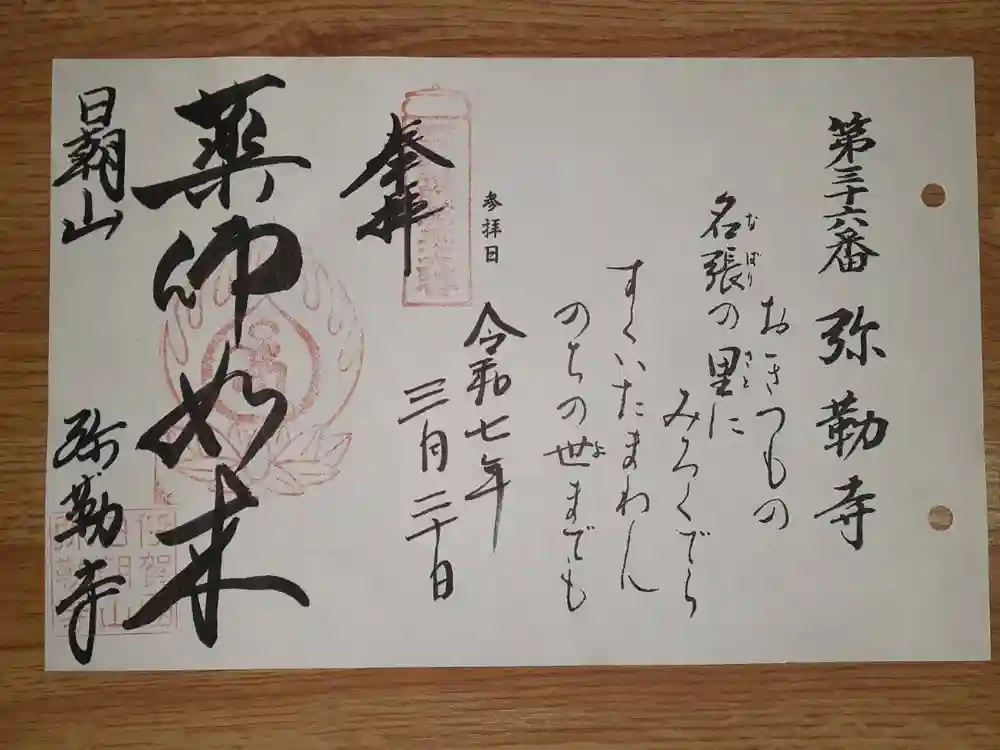 第三十六番 弥勒寺
おきつもの
名張の里に
なばり
さと
みろくでら
すくいたまわん
のちの世までも
よ
参拝日
令和七年
三月二十日
奉拝
薬師如来
日朝山
弥勒寺